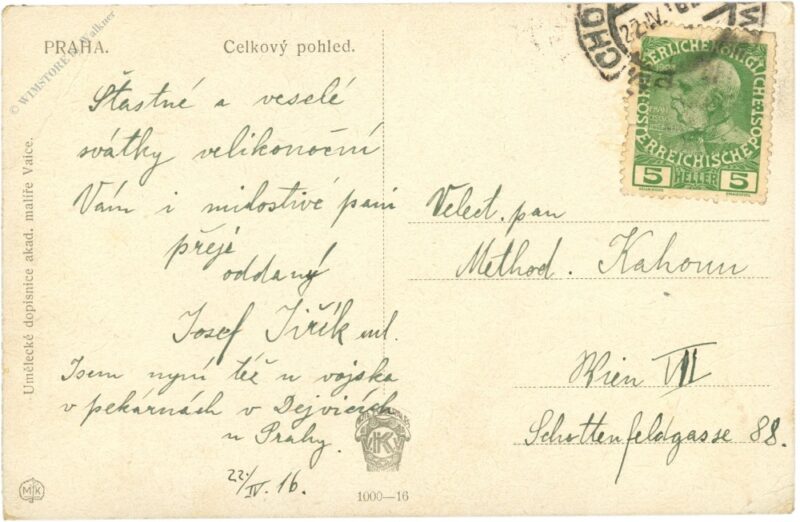 PRAHA.
Celkový pohled.
Šťastné a veselé
svátky velikonoční
Vám i milostivé paní
přeje
oddaný
Josef Jiřík ml.
Jsem nyní též u vojska
v pekárnách v Dejvicích
u Prahy.
22./IV. 16.
Velect. pan
Method. Kahoun
Wien VII
Schottenfeldgasse 88.
Umělecké dopisnice akad. malíře Vaice.
KAISERLICHE KÖNIGLICHE
ÖSTERREICHISCHE POST
5 HELLER 5
22.IV.
1000—16
MK
© WIMSTORE Walkner